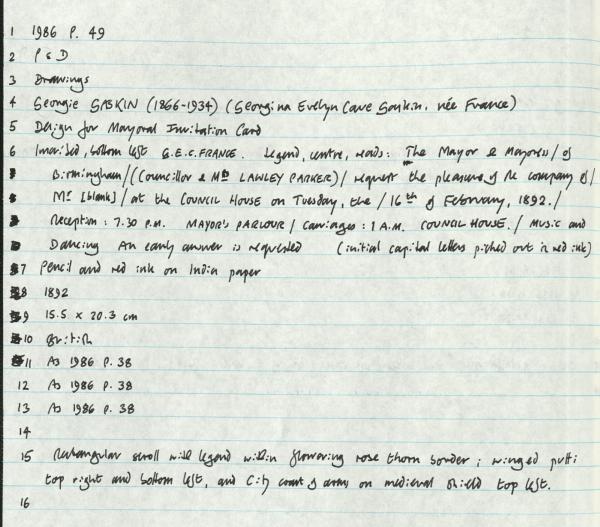 1 1986 P. 49
2 P & D
3 Drawings
4 Georgie GASKIN (1866-1934) (Georgina Evelyn Cave Gaskin, née France)
5 Design for Mayoral Invitation Card
6 Inscribed, bottom left G.E.C. FRANCE. Legend, centre, reads: The Mayor & Mayoress / of
Birmingham / (Councillor & Mrs LAWLEY PARKER) / request the pleasure of the company of /
Mr [blank] / at the COUNCIL HOUSE on Tuesday, the / 16th of February, 1892. /
Reception: 7.30 P.M. MAYOR'S PARLOUR / Carriages: 1 A.M. COUNCIL HOUSE. / Music and
Dancing An early answer is requested (initial capital letters picked out in red ink)
7 Pencil and red ink on India paper
8 1892
9 15.5 x 20.3 cm
10 British
11 As 1986 P. 38
12 As 1986 P. 38
13 As 1986 P. 38
14
15 Rectangular scroll with legend within flowering rose thorn border; winged putti
top right and bottom left, and City coat of arms on medieval shield top left.
16